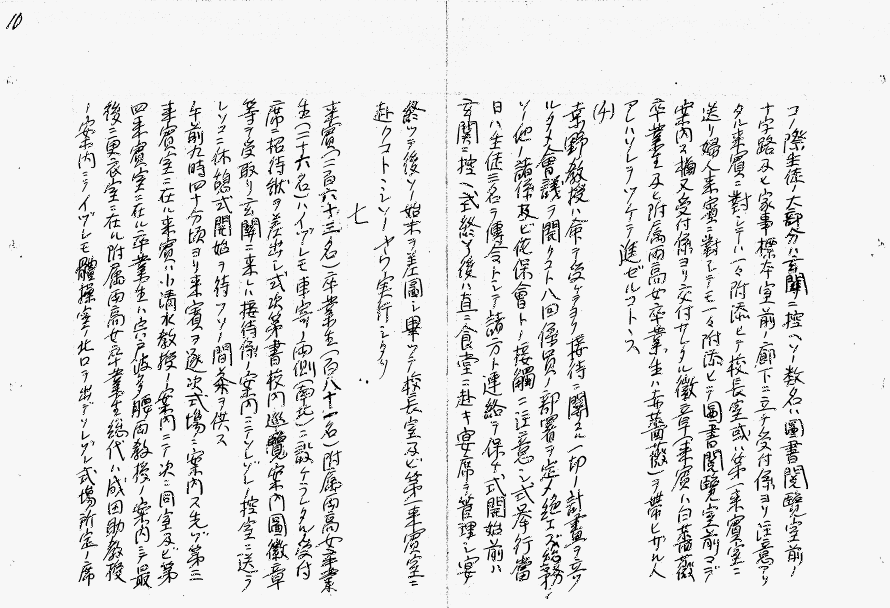 コノ際生徒ノ大部分ハ玄関ニ控ヘソノ数名ハ圖書閲覧室前ノ
十字路及ビ家事標本室前ノ廊下ニ立チ受付係ヨリ注意アリ
タル来賓ニ對シテハ一々附添ヒテ校長室或ハ第一来賓室ニ
送リ婦人来賓ニ對シテモ一々附添ヒテ圖書閲覧室前マデ
案内ス猶又受付係ヨリ交付サレタル徽章(来賓ハ白薔薇
卒業生及ビ附属両高女卒業生ハ赤薔薇)ヲ帯ビザル人
アレバソレヲツケテ進ゼルコトトス
(チ)
桑野教授ハ命ヲ受ケテヨリ接待ニ関スル一切ノ計畫ヲ立ツ
ルタメ會議ヲ開クコト八回係員ノ部署ヲ定メ絶エズ総務
ソノ他ノ諸係及ビ佐保會トノ接觸ニ注意シ式挙行當
日ハ生徒三名ヲ傳令トシテ諸方ト連絡ヲ保チ式開始前ハ
玄関ニ控ヘ式終リテ後ハ直ニ食堂ニ赴キ宴席ヲ管理シ宴
終ツテ後ソノ始末ヲ差圖シ畢ツテ校長室及ビ第一来賓室ニ
赴クコトトシソノヤウ実行シタリ
七
来賓(二百六十三名)卒業生(百八十一名)附属両高女卒業
生(二十六名)ハイヅレモ車寄ノ両側(南北)ニ設ケラレタル受付
席ニ招待状ヲ差出シ式次第書校内巡覧案内圖徽章
等ヲ受取リ玄関ニ来レバ接待係ノ案内ニテソレゾレノ控室ニ送ラ
レソコニ休憩式開始ヲ待ツソノ間茶ヲ供ス
午前九時四十分頃ヨリ来賓ヲ逐次式場ニ案内ス先ヅ第三
来賓室ニ在ル来賓ハ小清水教授ノ案内ニテ次ニ同室及ビ第
四来賓室ニ在ル卒業生ハ波多腰両教授ノ案内ニテ最
後ニ更衣室ニ在ル附属両高女卒業生総代ハ成田助教授
ノ案内ニテイヅレモ體操室ノ北口ヲ出デソレゾレ式場所定ノ席
10